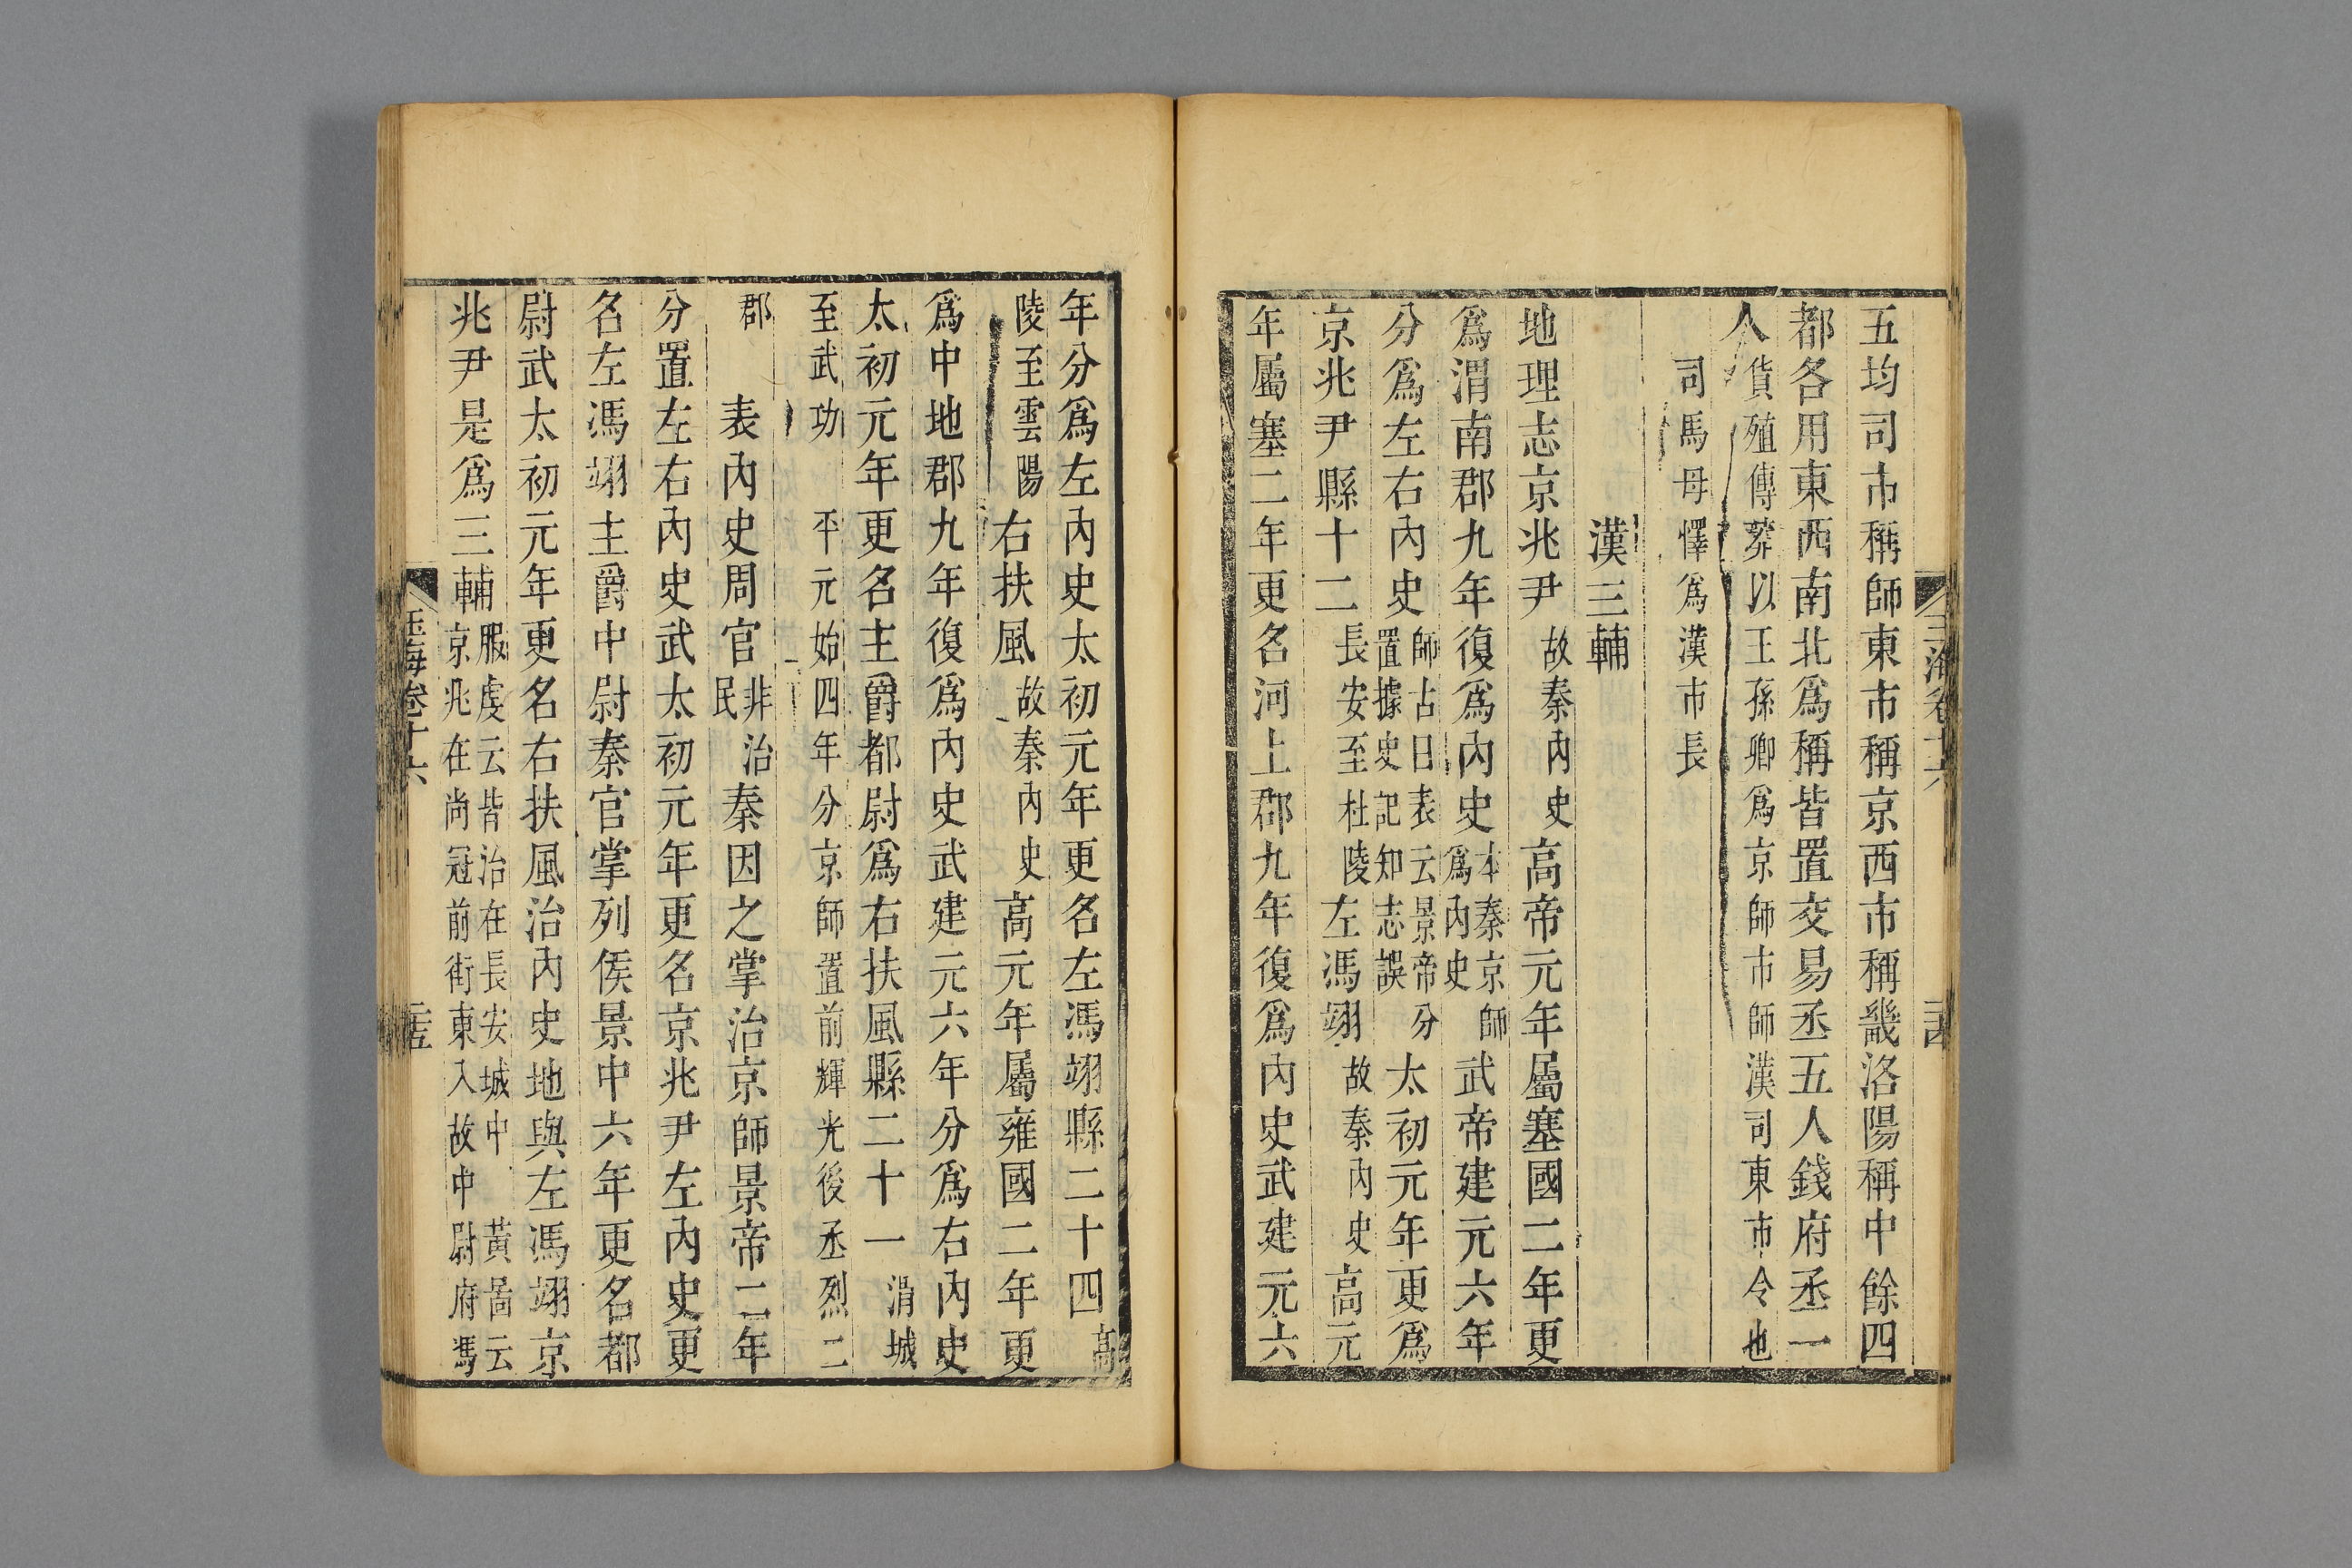 五均司市稱師東市稱京西市稱畿洛陽稱中餘四
都各用東西南北爲稱皆置交易丞五人錢府丞一
人貨殖傳莽以王孫卿爲京師市師漢司東市令也
司馬毋懌爲漢市長
漢三輔
地理志京兆尹故秦內史高帝元年屬塞國二年更
爲渭南郡九年復爲內史本秦京師爲內史武帝建元六年
分爲左右內史師古曰表云景帝分置據史記知志誤太初元年更爲
京兆尹縣十二長安至杜陵左馮翊故秦內史高元
年屬塞二年更名河上郡九年復爲內史武建元六
年分爲左內史太初元年更名左馮翊縣二十四高
陵至雲陽右扶風故秦內史高元年屬雍國二年更
爲中地郡九年復爲內史武建元六年分爲右內史
太初元年更名主爵都尉爲右扶風縣二十一渭城
至武功平元始四年分京師置前輝光後丞烈二
郡表內史周官非治民秦因之掌治京師景帝二年
分置左右內史武太初元年更名京兆尹左內史更
名左馮翊主爵中尉秦官掌列侯景中六年更名都
尉武太初元年更名右扶風治內史地與左馮翊京
兆尹是爲三輔服虔云皆治在長安城中黃啚云京兆在尚冠前街東入故中尉府馮
玉海卷十六